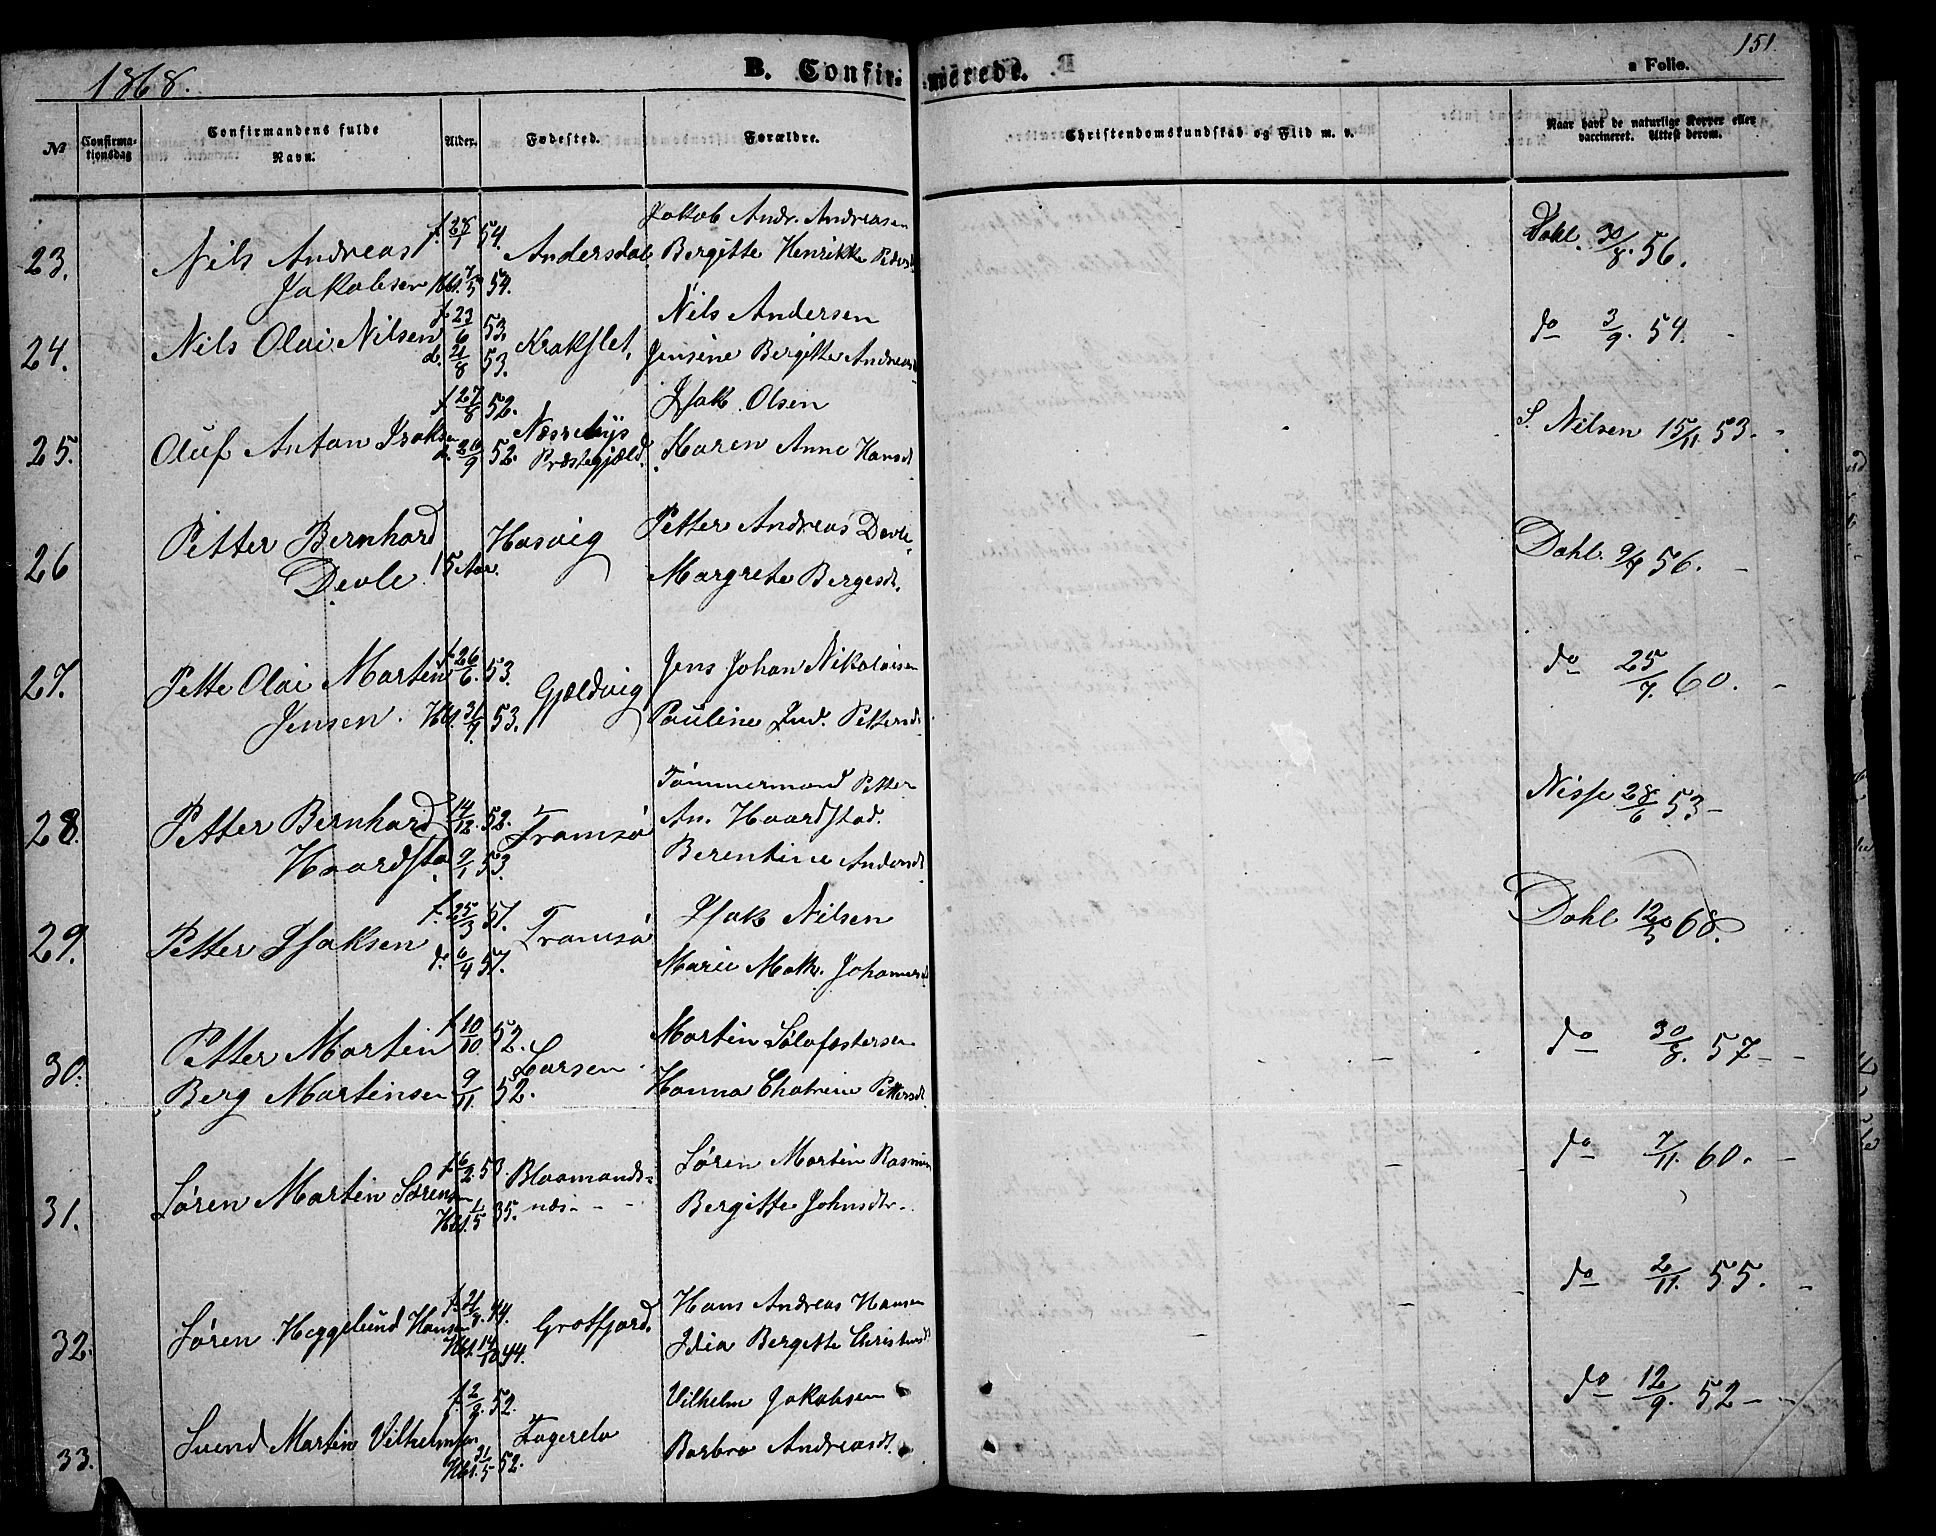 1868.
B. Confirmerede.
151
a Folio.
№
Confirmationsdag
Confirmandens fulde Navn.
Alder.
Fødested.
Forældre.
Christendomskundskab og Flid m. v.
Naar havt de naturlige Kopper eller vaccineret. Attest derom.
23. Nils Andreas Jakobsen f. 28/1 54. Hbt. 7/5 54. Andersdal. Jakob Andr. Andreasen Bergitte Henrikke Pedersd. Dahl. 30/8. 56.
24. Nils Olai Nilsen f. 23/6 53. d. 21/8 53. Krakslet, Nils Andersen Jensine Bergitte Andreasd. do 3/9. 54.
25. Oluf Anton Isaksen f. 27/8 52. d. 26/9 52. Næssebys Præstegjæld. Isak Olsen Karen Anne Hansd. S. Nilsen 15/11 53.
26 Petter Bernhard Devle 15 Aar. Hasvig Petter Andreas Devle Margrete Bergesd. Dahl. 9/7 56.
27. Pette Olai Martin Jensen. f. 26/6. 53. Hbt. 31/7 53. Gjældvig Jens Johan Nikolaisen Pauline Jud. Pettersd. do 25/7. 60.
28. Petter Bernhard Haardsta. 14/12. 52. 9/1 53. Tromsø Tømmermand Petter An. Haardstad. Berentine Andersd. Niss 28/6 53
29. Petter Isaksen f. 25/3 51. d. 6/4 51. Tromsø Isak Nilsen Marie Math. Johannesd. Dahl 12/5 68.
30. Petter Martin Berg Martinsen f. 10/10. 52. 9/11 52. Larsen Martin Sølafestersen Hanna Chatrine Pettersd. do 30/8. 57
31. Søren Martin Sørensen f. 6/2 53. Hbt. 1/5 35. Blaamandsnæs Søren Martin Rasmus Bergitte Johnsdtr. do 7/11. 60.
32. Søren Heggelund Hansen f. 21/9. 44. Hbt. 14/10 44. Grotfjord. Hans Andreas Hansen Idia Bergitte Christensd. do 2/11. 55.
33. Svend Martin Vilhelmsen f. 2/2. 52. Hbt. 31/5 52. Fagerelv Vilhelm Jakobsen Barbro Andreasd. do 12/9. 52